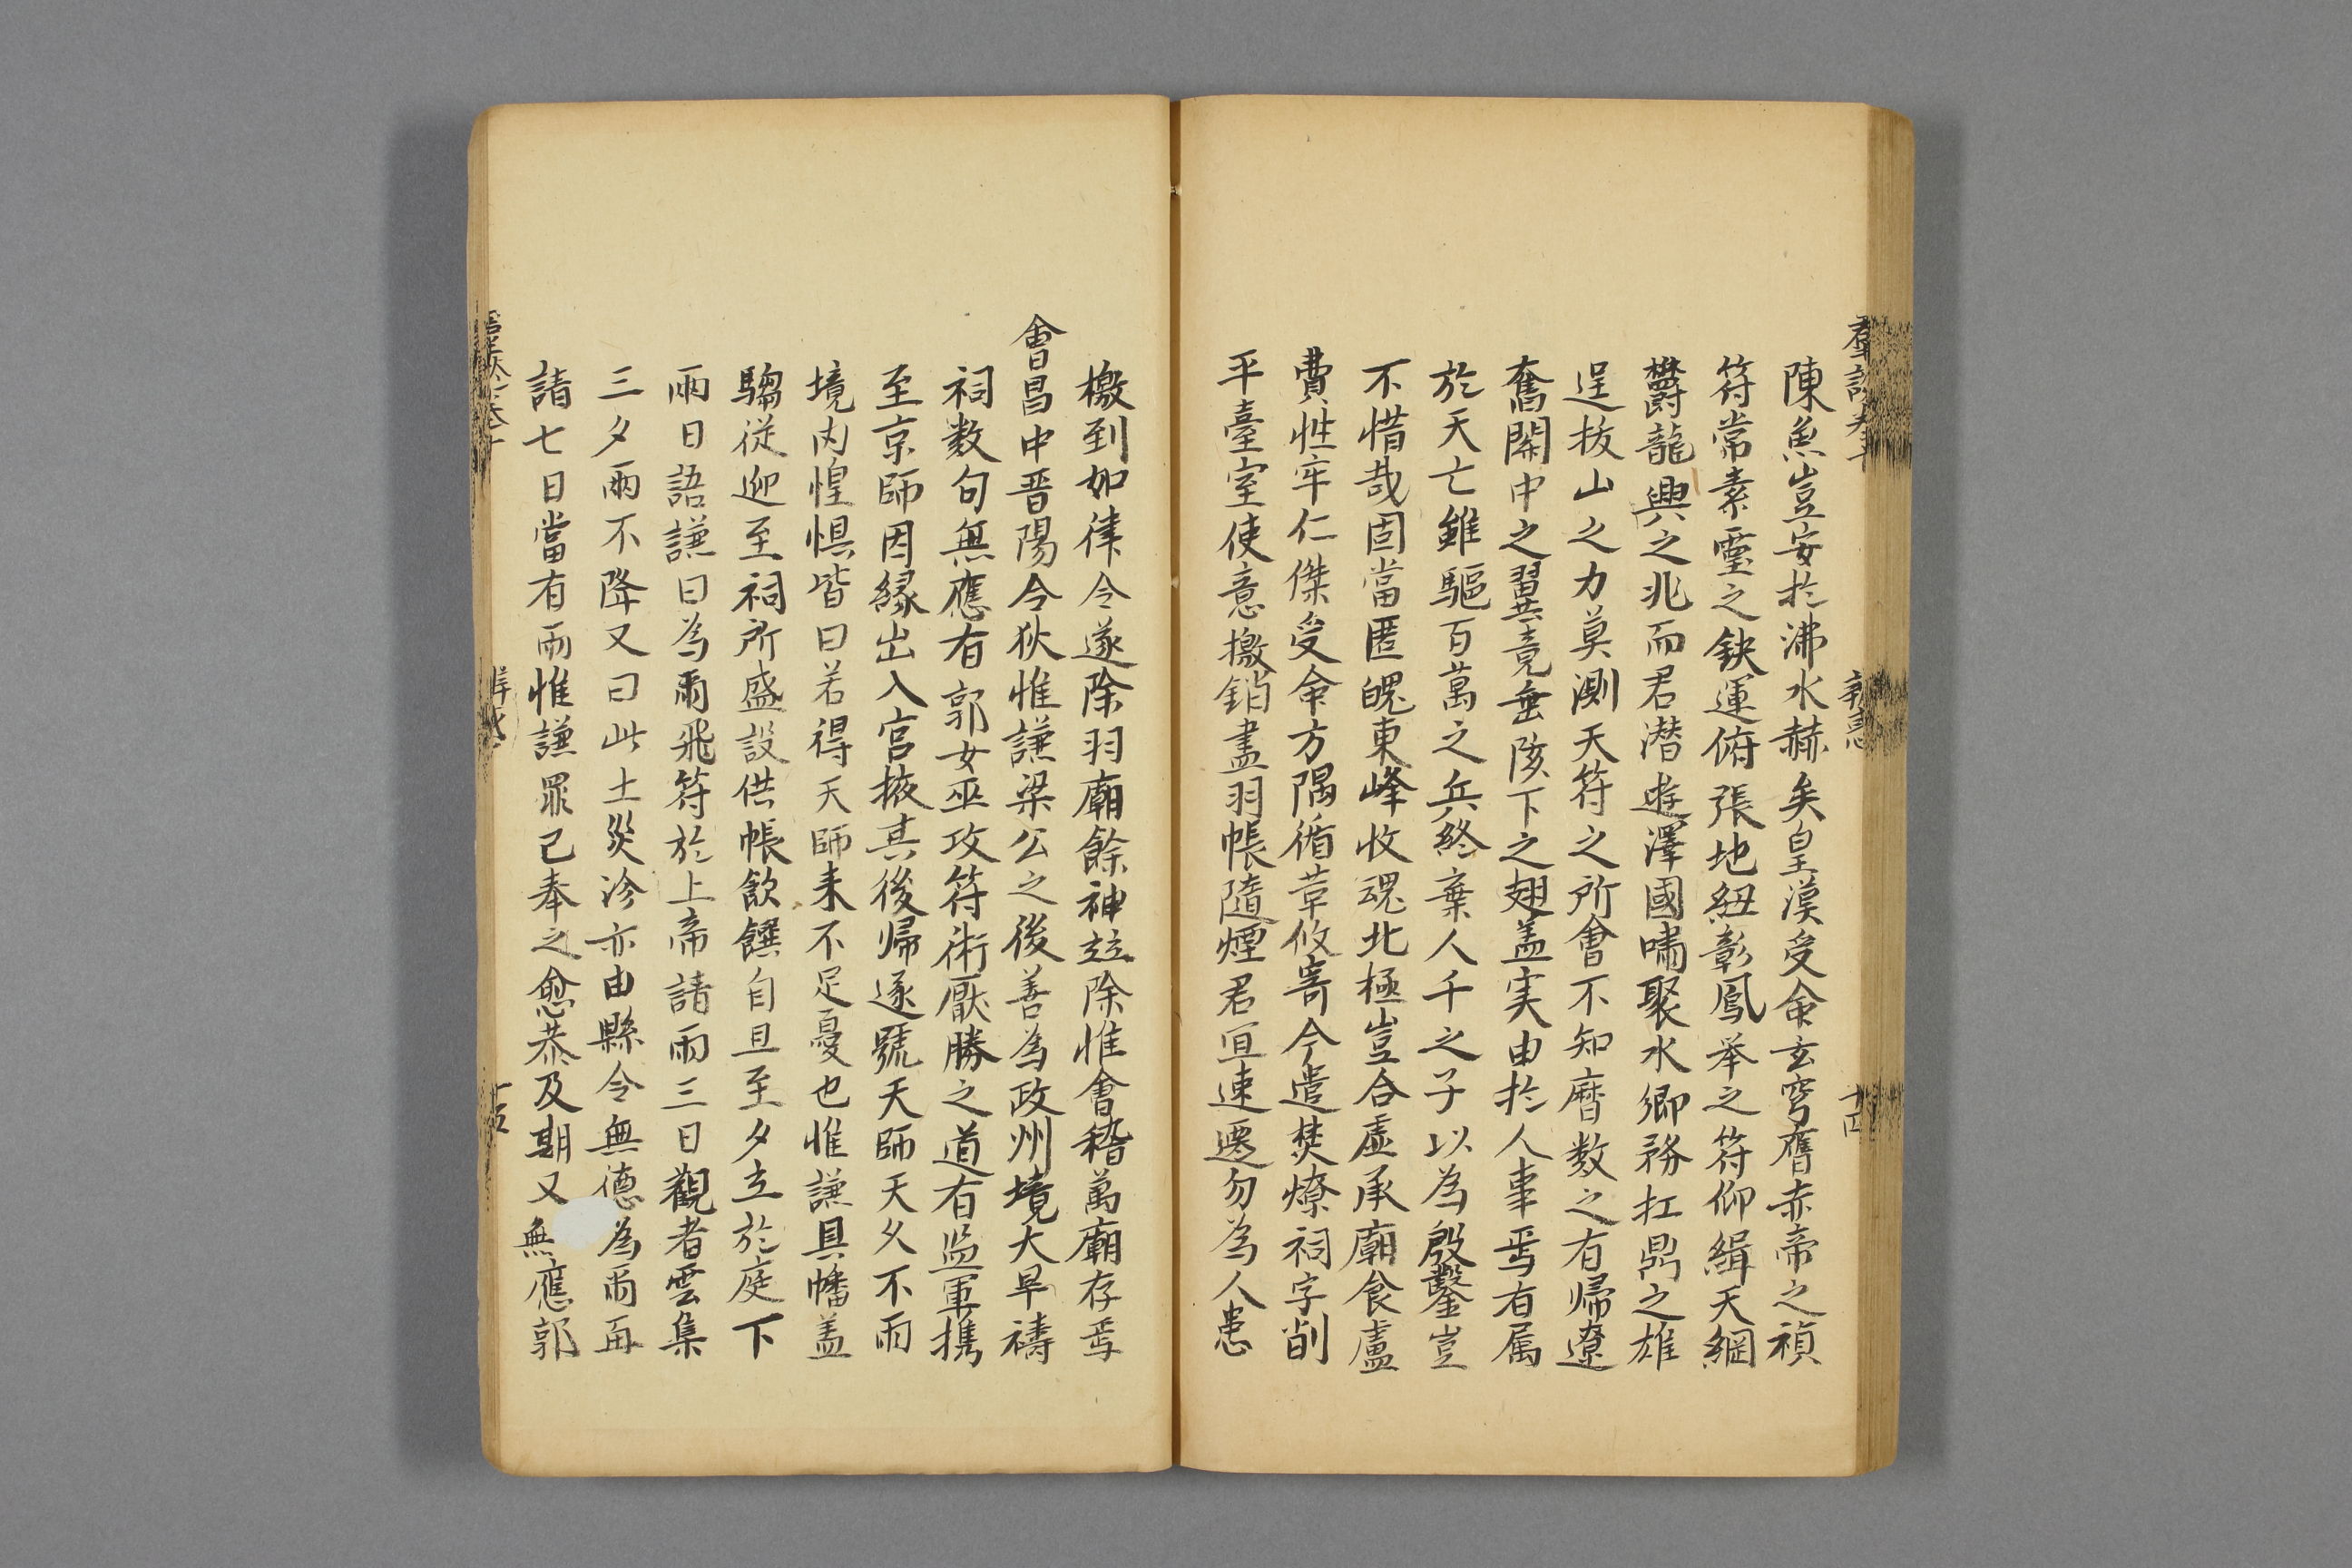 陳魚豈安於沸水赫矣皇漢受命玄穹膺赤帝之禎
符常素靈之鈌運俯張地紐彰鳳举之符仰緝天綱
欝龍興之兆而君潜遊澤國嘯聚水卿務扛鼎之雄
逞抜山之力莫測天符之所會不知曆数之有帰遼
奮関中之翼竟垂陔下之翅盖実由於人事焉有属
於天亡雖驅百萬之兵終棄人千之子以為殷鑿豈
不惜哉固當匿魄東峰收魂北極豈合虛承廟食盧
費牲牢仁傑受命方隅循草攸寄今遣焚燎祠字削
平臺室使意撽銷盡羽帳隨煙君宜速遷勿為人患
檄到如律令遂除羽廟餘神竝除惟會稽萬廟存焉
會昌中晋陽令狄惟謙梁公之後善為政州境大旱禱
祠数句無應有郭女巫攻符術厭勝之道有监軍携
至京師因縁出入宫掖其後帰遂號天師天久不雨
境内惶惧皆曰若得天師来不足憂也惟謙具幡盖
騶從迎至祠所盛設供帳飲饌自旦至夕立於庭下
雨日語謙曰為雨飛符於上帝請雨三日觀者雲集
三夕雨不降又曰此土災沴亦由縣令無德為雨再
請七日當有雨惟謙罪己奉之愈恭及期又無應郭